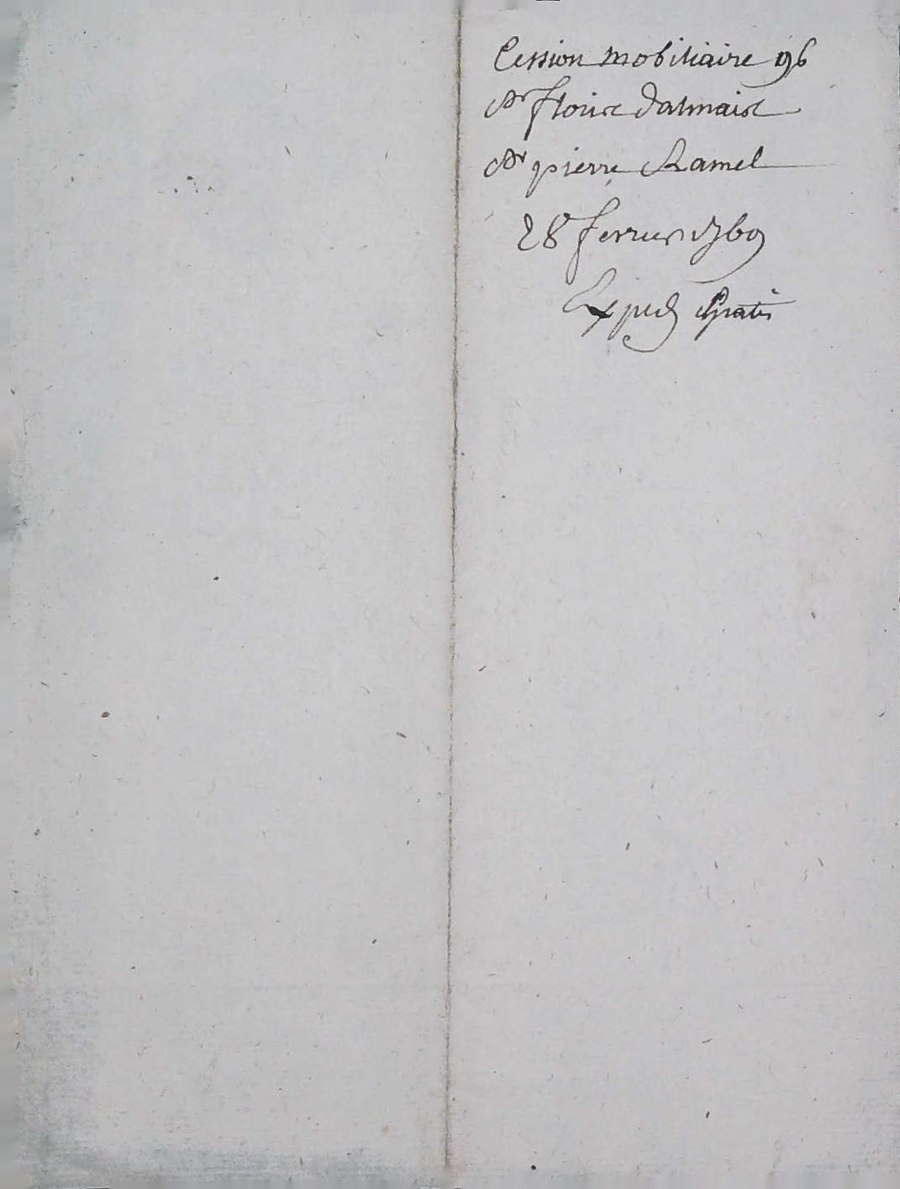 Cession mobiliaire 96
Sr floris dalmais
Sr pierre Ramel
28 fevrier 1769
Exped Gratis